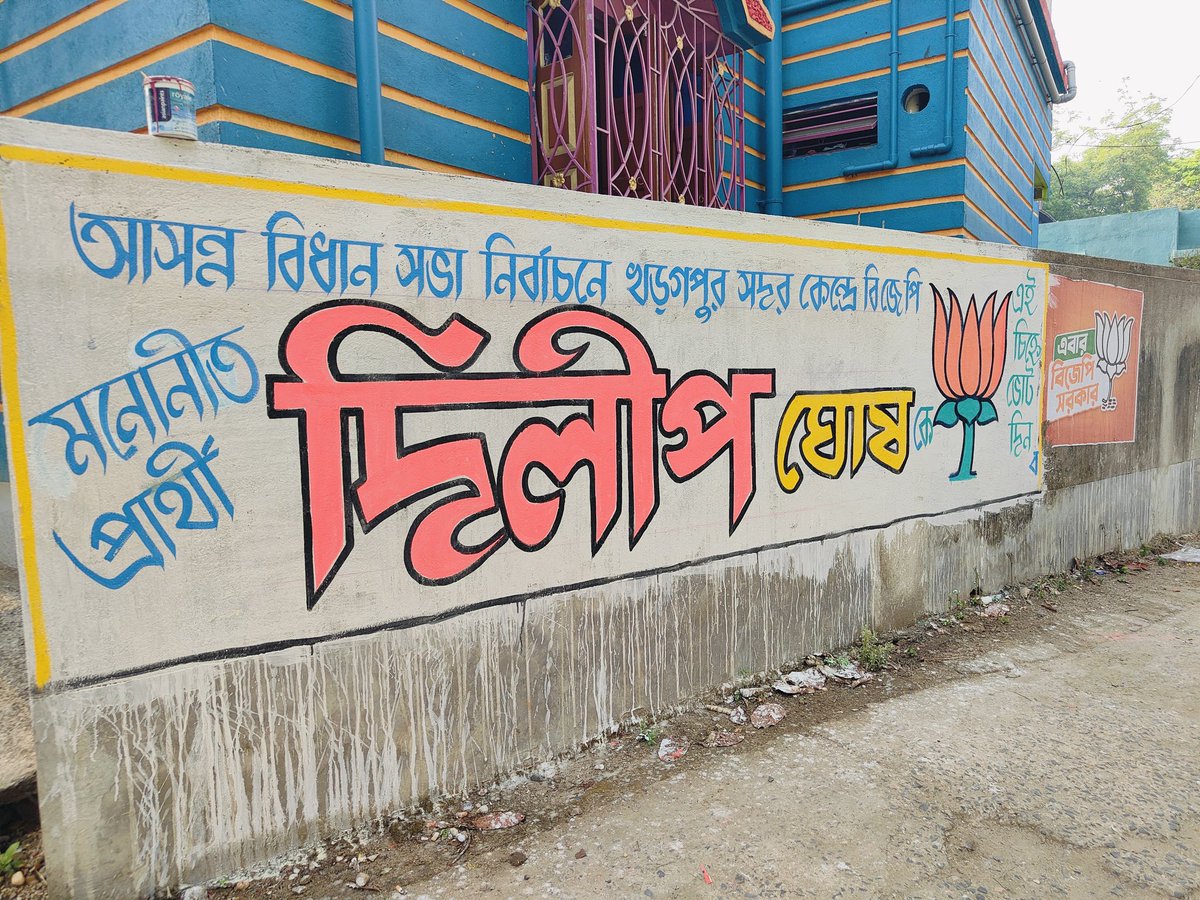 আসন্ন বিধান সভা নির্বাচনে খড়গপুর সদর কেন্দ্রে বিজেপি
মনোনীত
প্রার্থী
দিলীপ ঘোষ কে
এই
চিহ্নে
ভোট
দিন
এবার
বিজেপি
সরকার